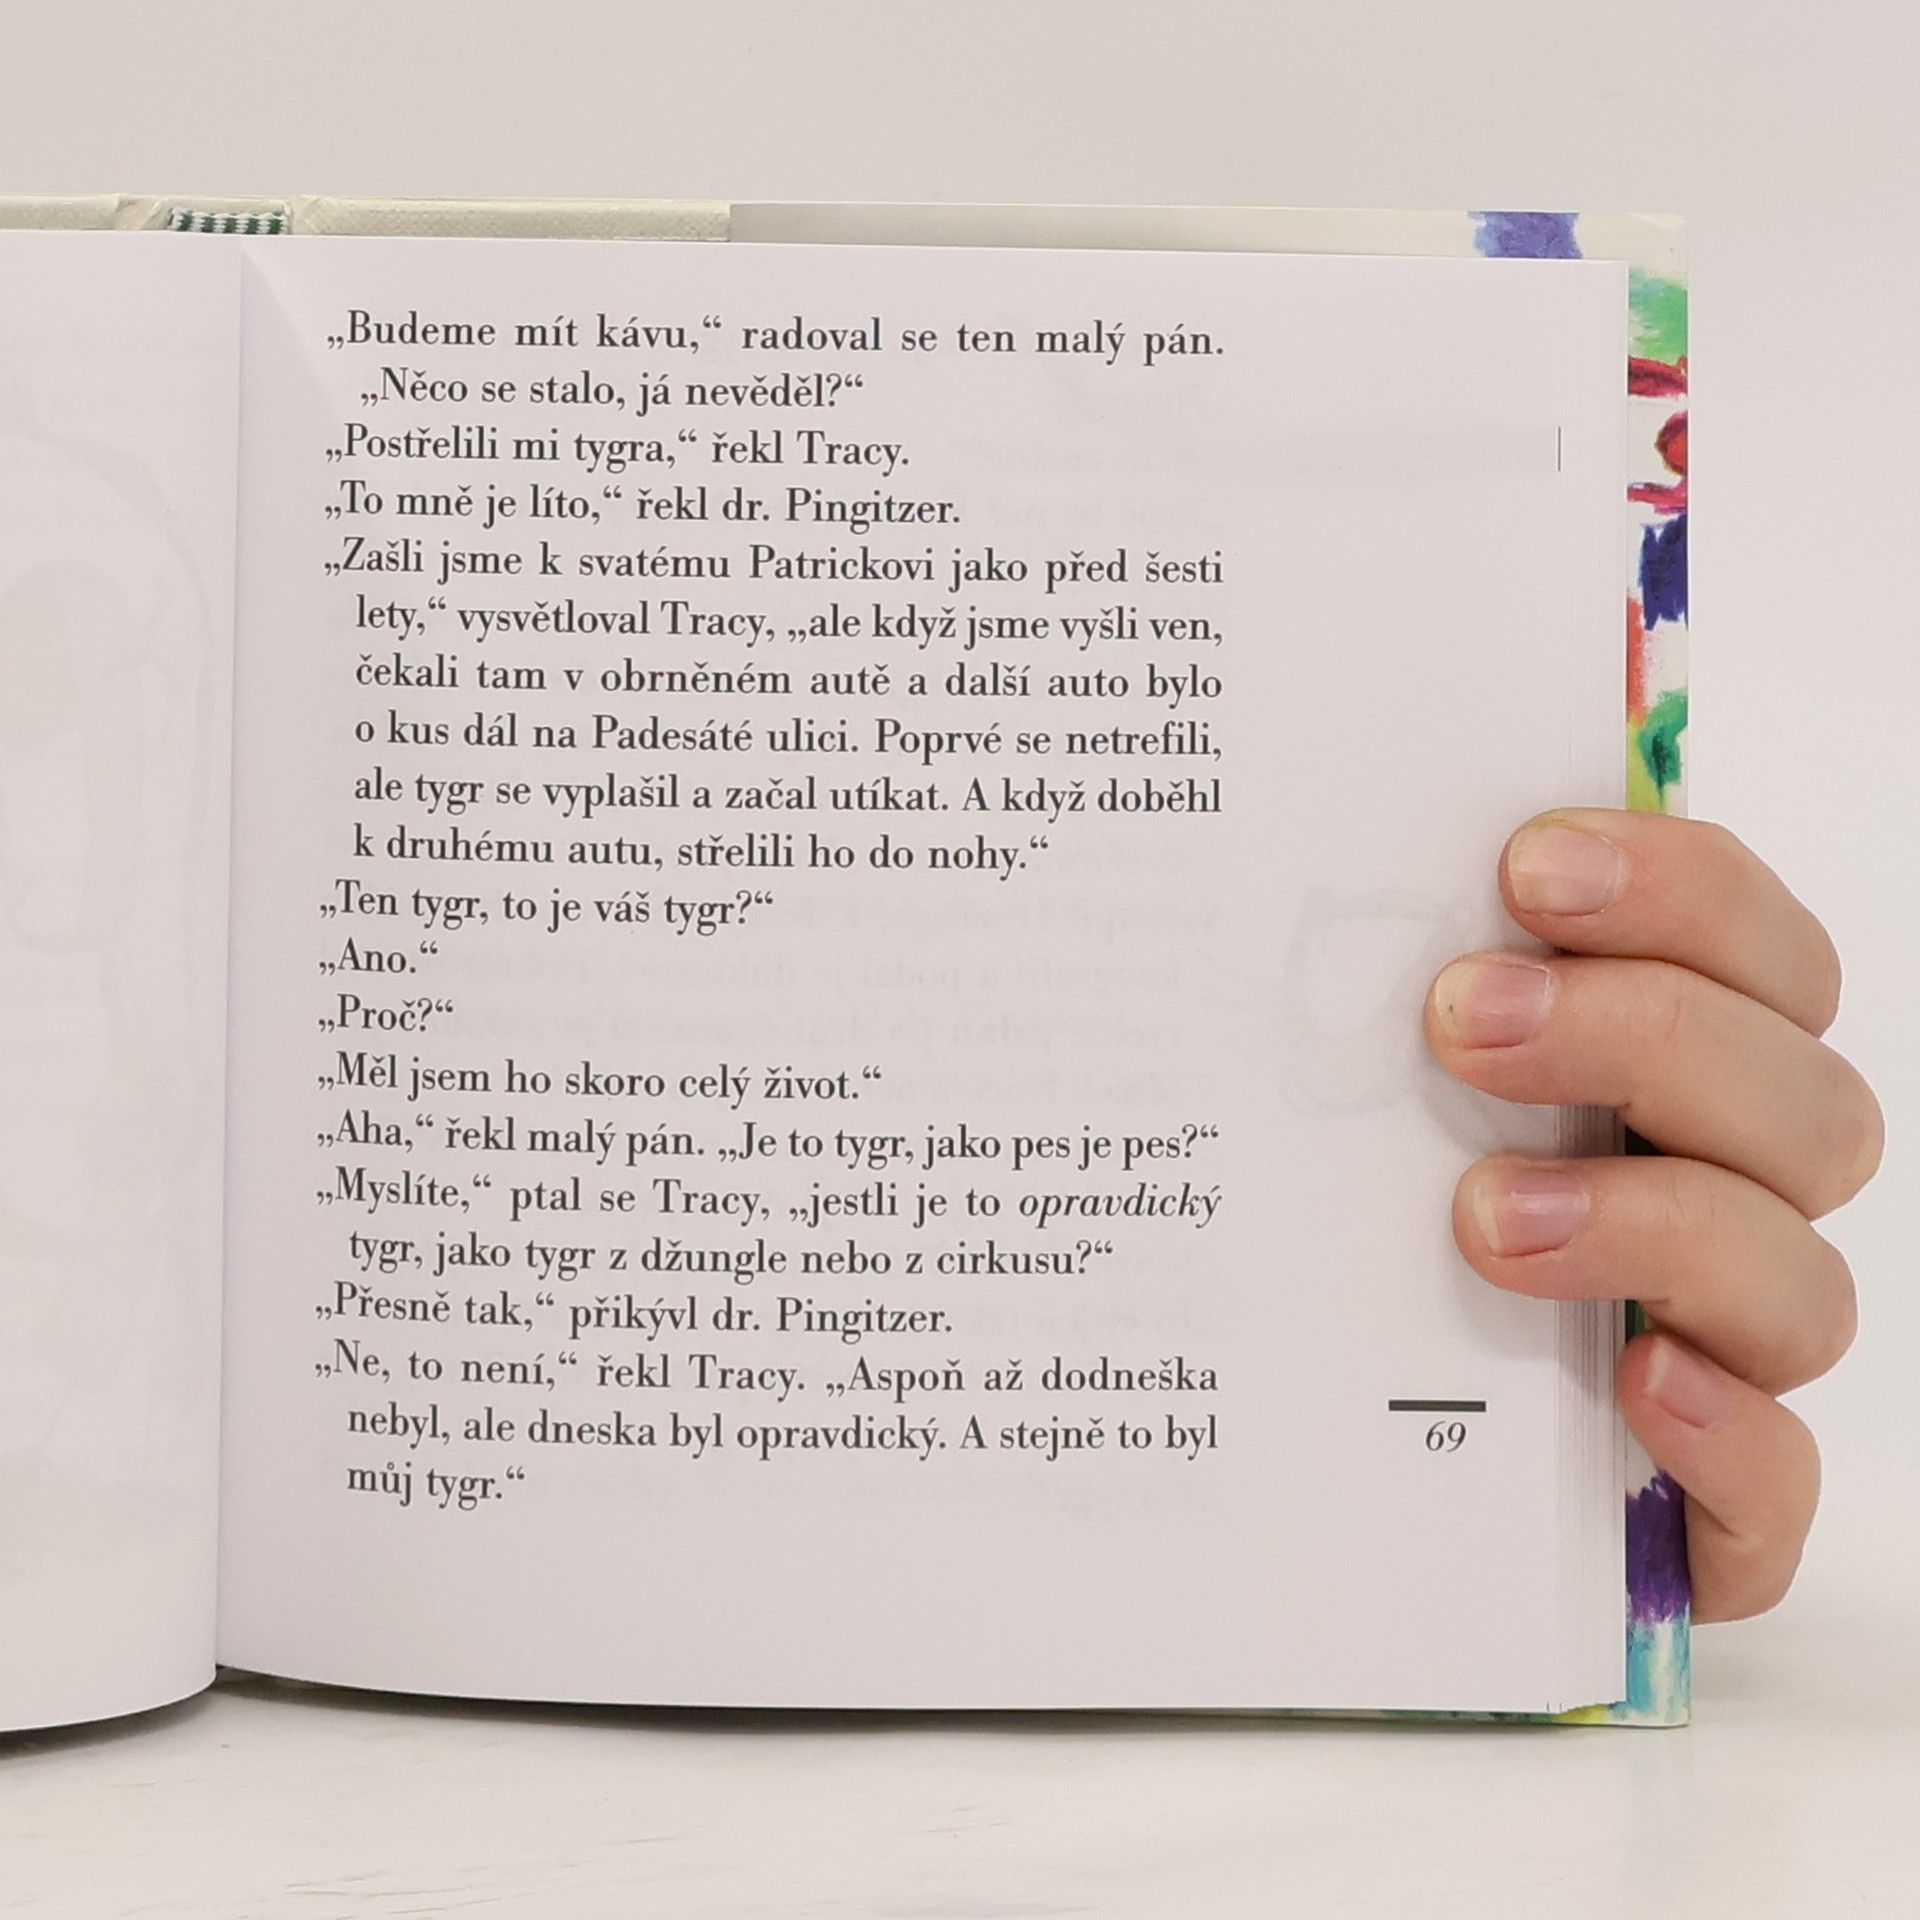 „Budeme mít kávu,“ radoval se ten malý pán.
„Něco se stalo, já nevěděl?“
„Postřelili mi tygra,“ řekl Tracy.
„To mně je líto,“ řekl dr. Pingitzer.
„Zašli jsme k svatému Patrickovi jako před šesti
lety,“ vysvětloval Tracy, „ale když jsme vyšli ven,
čekali tam v obrněném autě a další auto bylo
o kus dál na Padesáté ulici. Poprvé se netrefili,
ale tygr se vyplašil a začal utíkat. A když doběhl
k druhému autu, střelili ho do nohy.“
„Ten tygr, to je váš tygr?“
„Ano.“
„Proč?“
„Měl jsem ho skoro celý život.“
„Aha,“ řekl malý pán. „Je to tygr, jako pes je pes?“
„Myslíte,“ ptal se Tracy, „jestli je to opravdický
tygr, jako tygr z džungle nebo z cirkusu?“
„Přesně tak,“ přikývl dr. Pingitzer.
„Ne, to není,“ řekl Tracy. „Aspoň až dodneška
nebyl, ale dneska byl opravdický. A stejně to byl
můj tygr.“
69